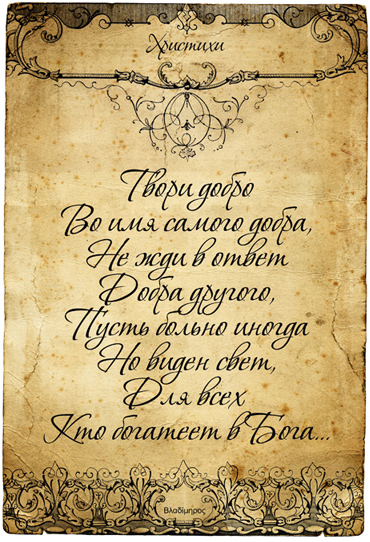 Христихи
Твори добро
Во имя самого добра,
Не жди в ответ
Добра другого,
Пусть больно иногда
Но виден свет,
Для всех
Кто богатеет в Бога...
Βλαδίμηρος